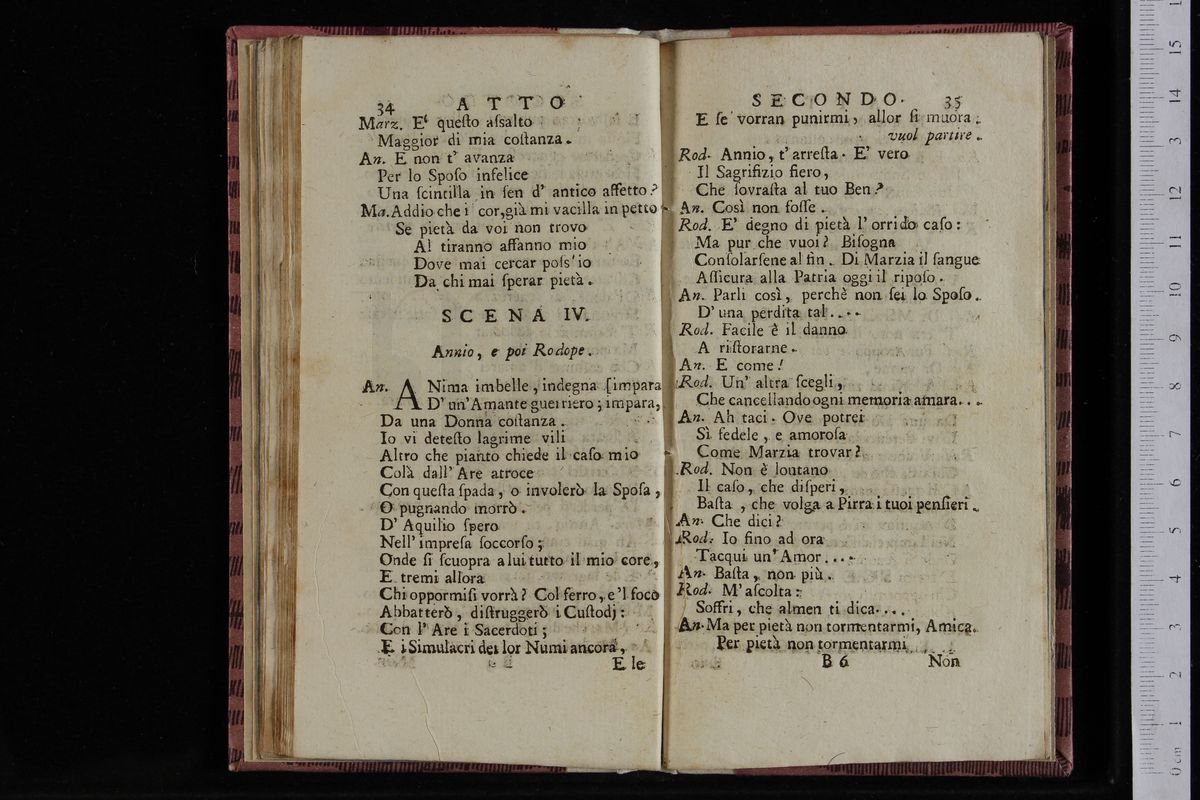 34 ATTO
Marz. E' queſto aſsalto
Maggior di mia coſtanza.
An. E non t' avanza
Per lo Spoſo infelice
Una ſcintilla in ſen d' antico affetto?
Ma. Addio che i cor, già mi vacilla in petto
Se pietà da voi non trovo
Al tiranno affanno mio
Dove mai cercar poſs'io
Da chi mai ſperar pietà.
SCENA IV.
Annio, e poi Rodope.
An. ANima imbelle, indegna [impara
D' un'Amante guerriero; impara,
Da una Donna coſtanza.
Io vi deteſto lagrime vili
Altro che pianto chiede il caſo mio
Colà dall' Are atroce
Con queſta ſpada, o involerò la Spoſa,
O pugnando morrò.
D' Aquilio ſpero
Nell' impreſa ſoccorſo;
Onde ſi ſcuopra a lui tutto il mio core,
E tremi allora
Chi oppormiſi vorrà? Col ferro, e'l foco
Abbatterò, diſtruggerò i Cuſtodj:
Con l' Are i Sacerdoti;
E i Simulacri dei lor Numi ancora,
E ſe
SECONDO. 35
E ſe vorran punirmi, allor ſi muora.
vuol partire.
Rod. Annio, t' arreſta. E' vero
Il Sagrifizio fiero,
Che ſovraſta al tuo Ben?
An. Così non foſſe.
Rod. E' degno di pietà l' orrido caſo:
Ma pur che vuoi? Biſogna
Conſolarſene al fin. Di Marzia il ſangue
Aſſicura alla Patria oggi il ripoſo.
An. Parli così, perchè non ſei lo Spoſo.
D' una perdita tal....
Rod. Facile è il danno
A riſtorarne.
An. E come!
Rod. Un' altra ſcegli,
Che cancellando ogni memoria amara...
An. Ah taci. Ove potrei
Sì fedele, e amoroſa
Come Marzia trovar?
Rod. Non è lontano
Il caſo, che diſperi,
Baſta, che volga a Pirra i tuoi penſieri.
An. Che dici?
Rod. Io fino ad ora
Tacqui un' Amor....
An. Baſta, non più.
Rod. M' aſcolta:
Soffri, che almen ti dica....
An. Ma per pietà non tormentarmi, Amica.
Per pietà non tormentarmi
B 6 Non